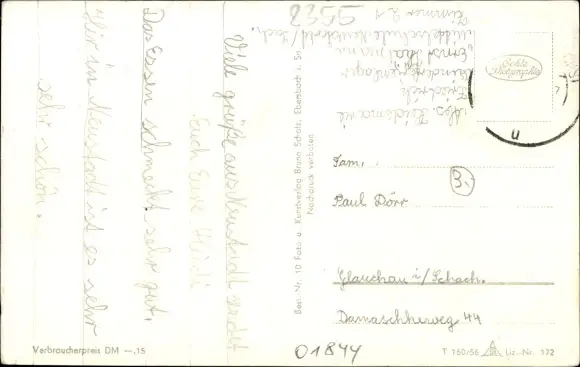 Viele grüße aus Neustadt sendet
Euch Eure Heidi
Das Essen schmeckt sehr gut.
Hir in Neustadt ist es sehr
sehr schön.
5538
Abs.
Friedrich
Kinderferienlager
"Ernst
Mittelschule Neustadt/Sach.
Zimmer 21
Echte Photographie
Fam.
Paul Dörr
3.
Glauchau i/Schach.
Damaschkeweg 44
Best.-Nr. 10 Foto u. Kunstverlag Bruno Scholz, Ebersbach i. Sa.
Nachdruck verboten
Verbraucherpreis DM —,15
01844
T 160/56 Liz.-Nr. 172